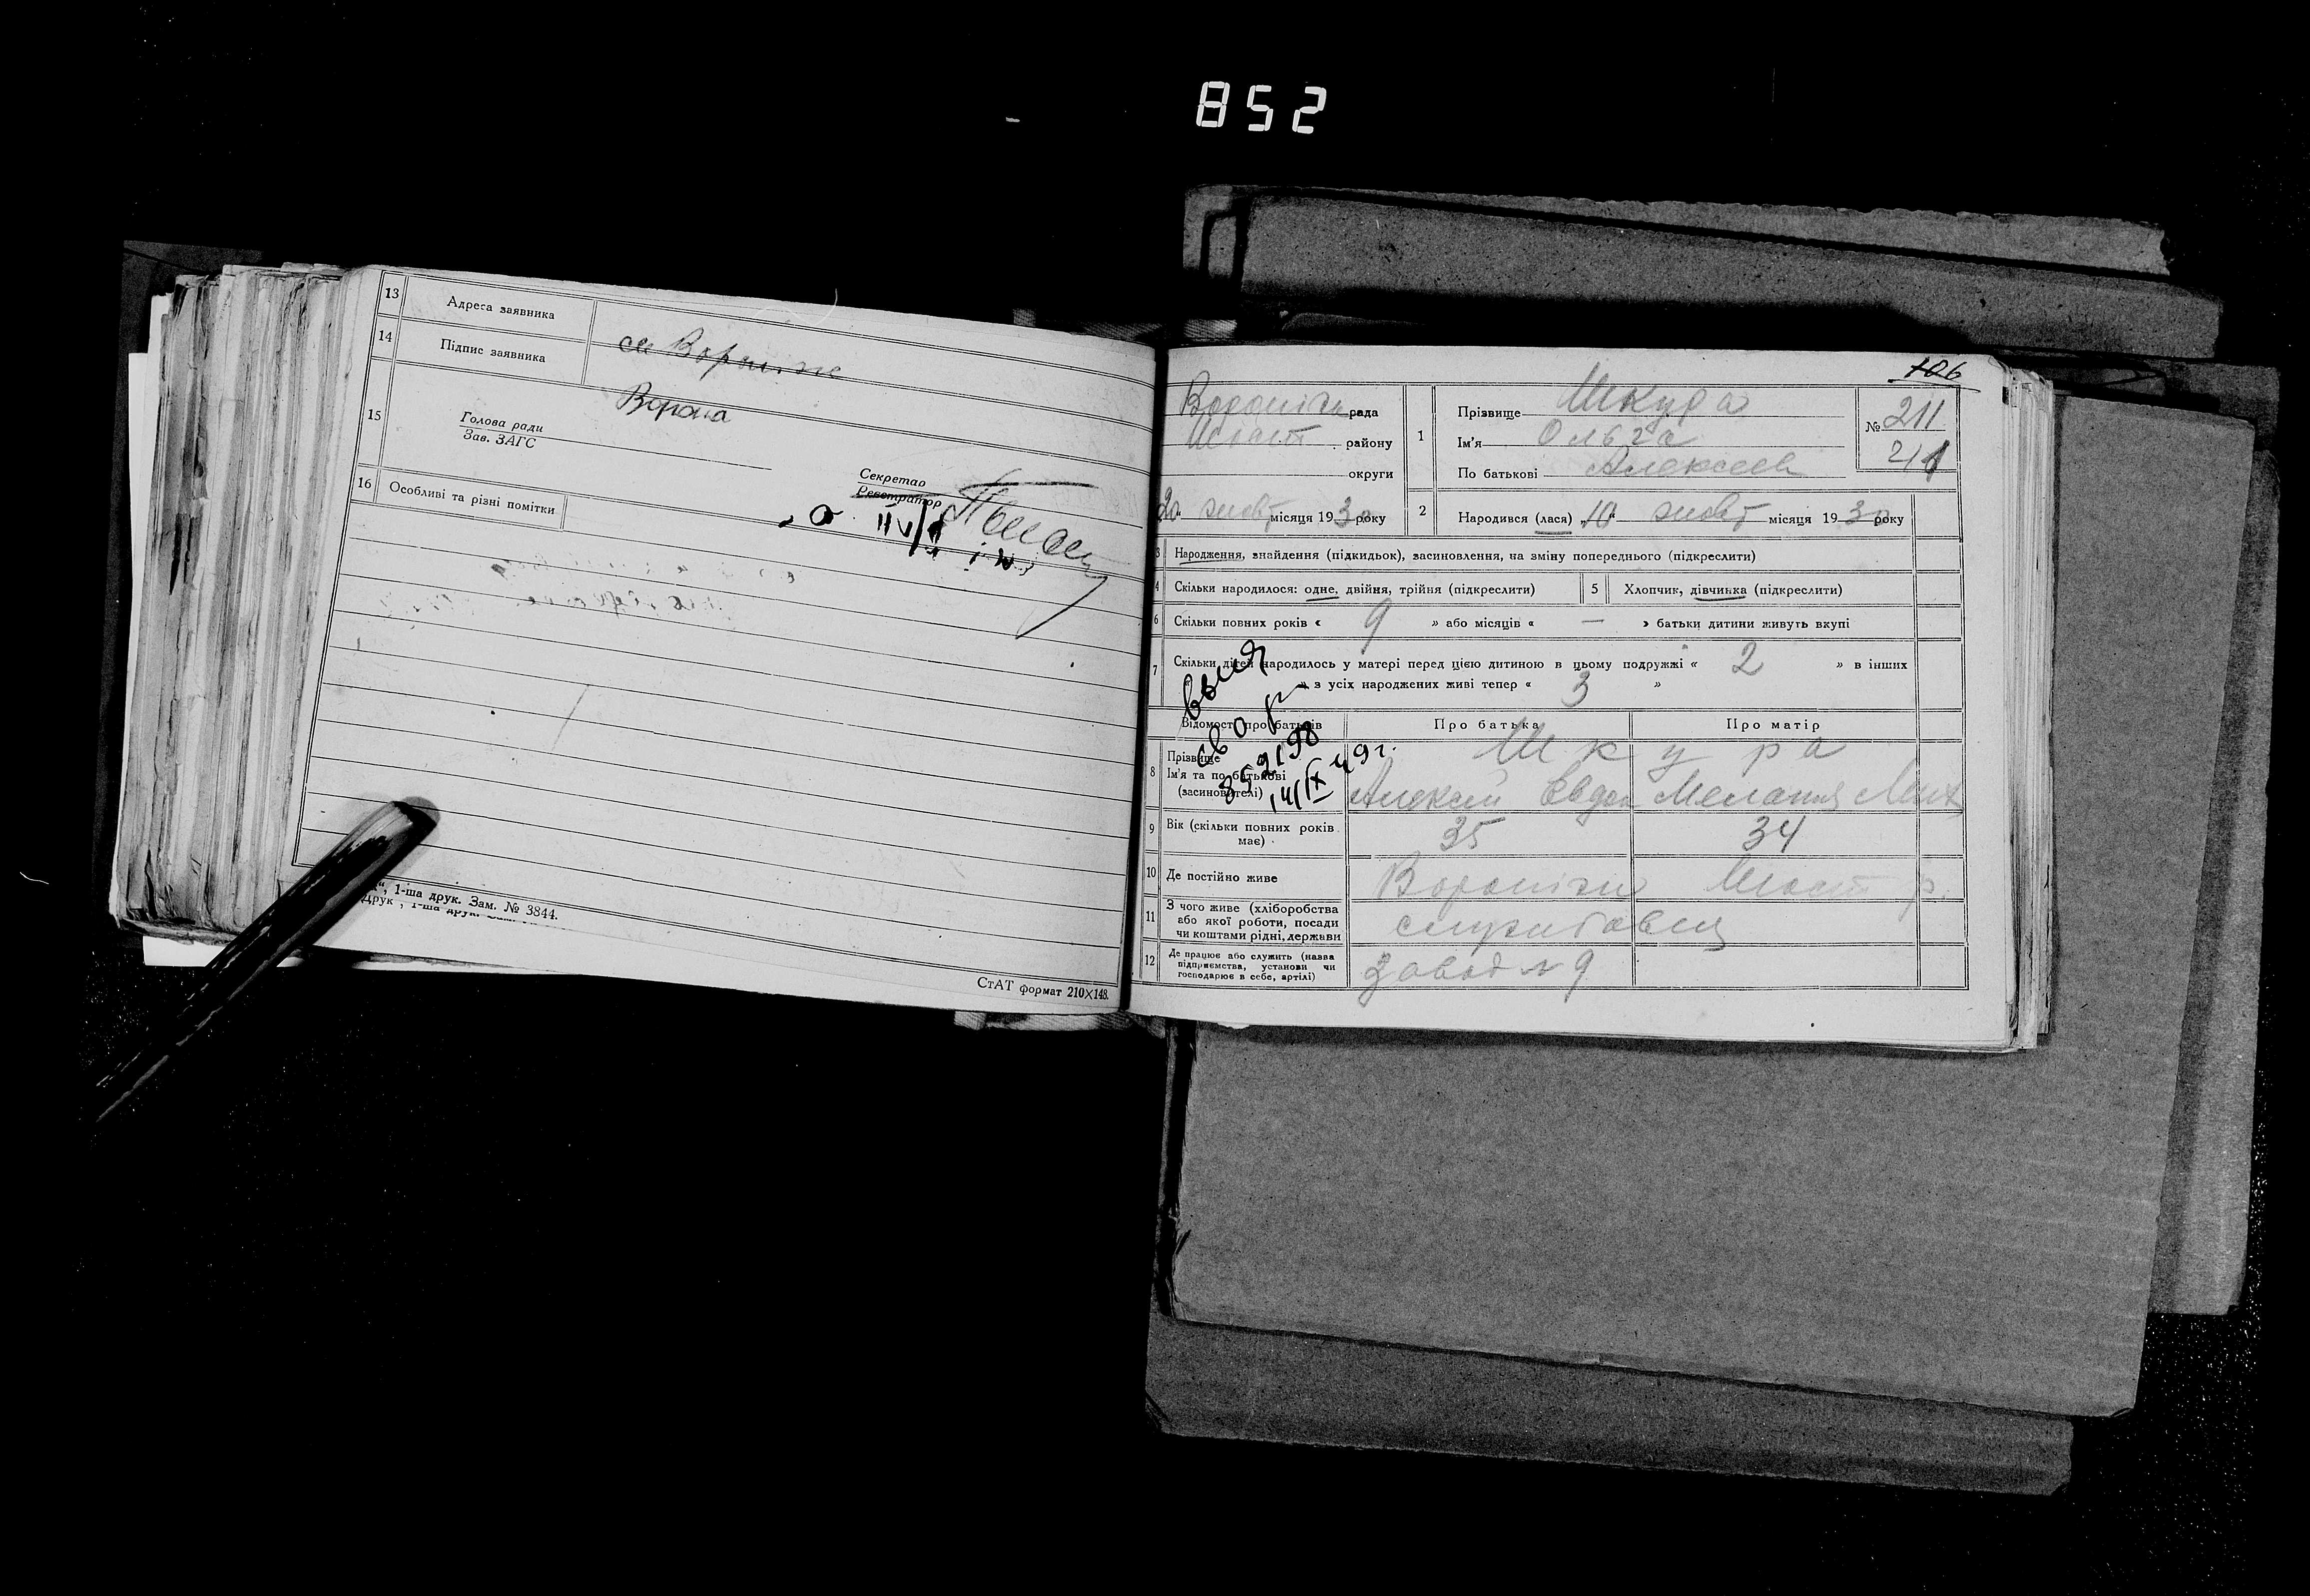 852
13 Адреса заявника
см Вороніж
14 Підпис заявника
Ворона
15 Голова ради
Зав. ЗАГС
Секретар
Реєстратор
16 Особливі та різні помітки
1-ша друк. Зам. № 3844.
СтАТ формат 210×148.
106
рада
району
округи
20 жовт місяця 1930 року
1 Прізвище Шкура
Ім'я Ольга
По батькові Алексеев
№ 211
211
2 Народився (лася) „10“ жовт місяця 1930 року
3 Народження, знайдення (підкидьок), засиновлення, на зміну попереднього (підкреслити)
4 Скільки народилося: одне, двійня, трійня (підкреслити)
5 Хлопчик, дівчинка (підкреслити)
6 Скільки повних років « 9 » або місяців « — » батьки дитини живуть вкупі
7 Скільки дітей народилось у матері перед цією дитиною в цьому подружжі « 2 » в інших
» з усіх народжених живі тепер « 3 »
Відомості про батьків
Про батька
Про матір
8 Прізвище
Ім'я та по батькові
(засиновителі)
Шкура
Алексей Евдок
Мелания Мих
9 Вік (скільки повних років має)
35
34
10 Де постійно живе
11 З чого живе (хліборобства
або якої роботи, посади
чи коштами рідні, держави
службовец
12 Де працює або служить (назва
підприємства, установи чи
господарює в себе, артілі)
Завод № 9
14/IX 49 г.